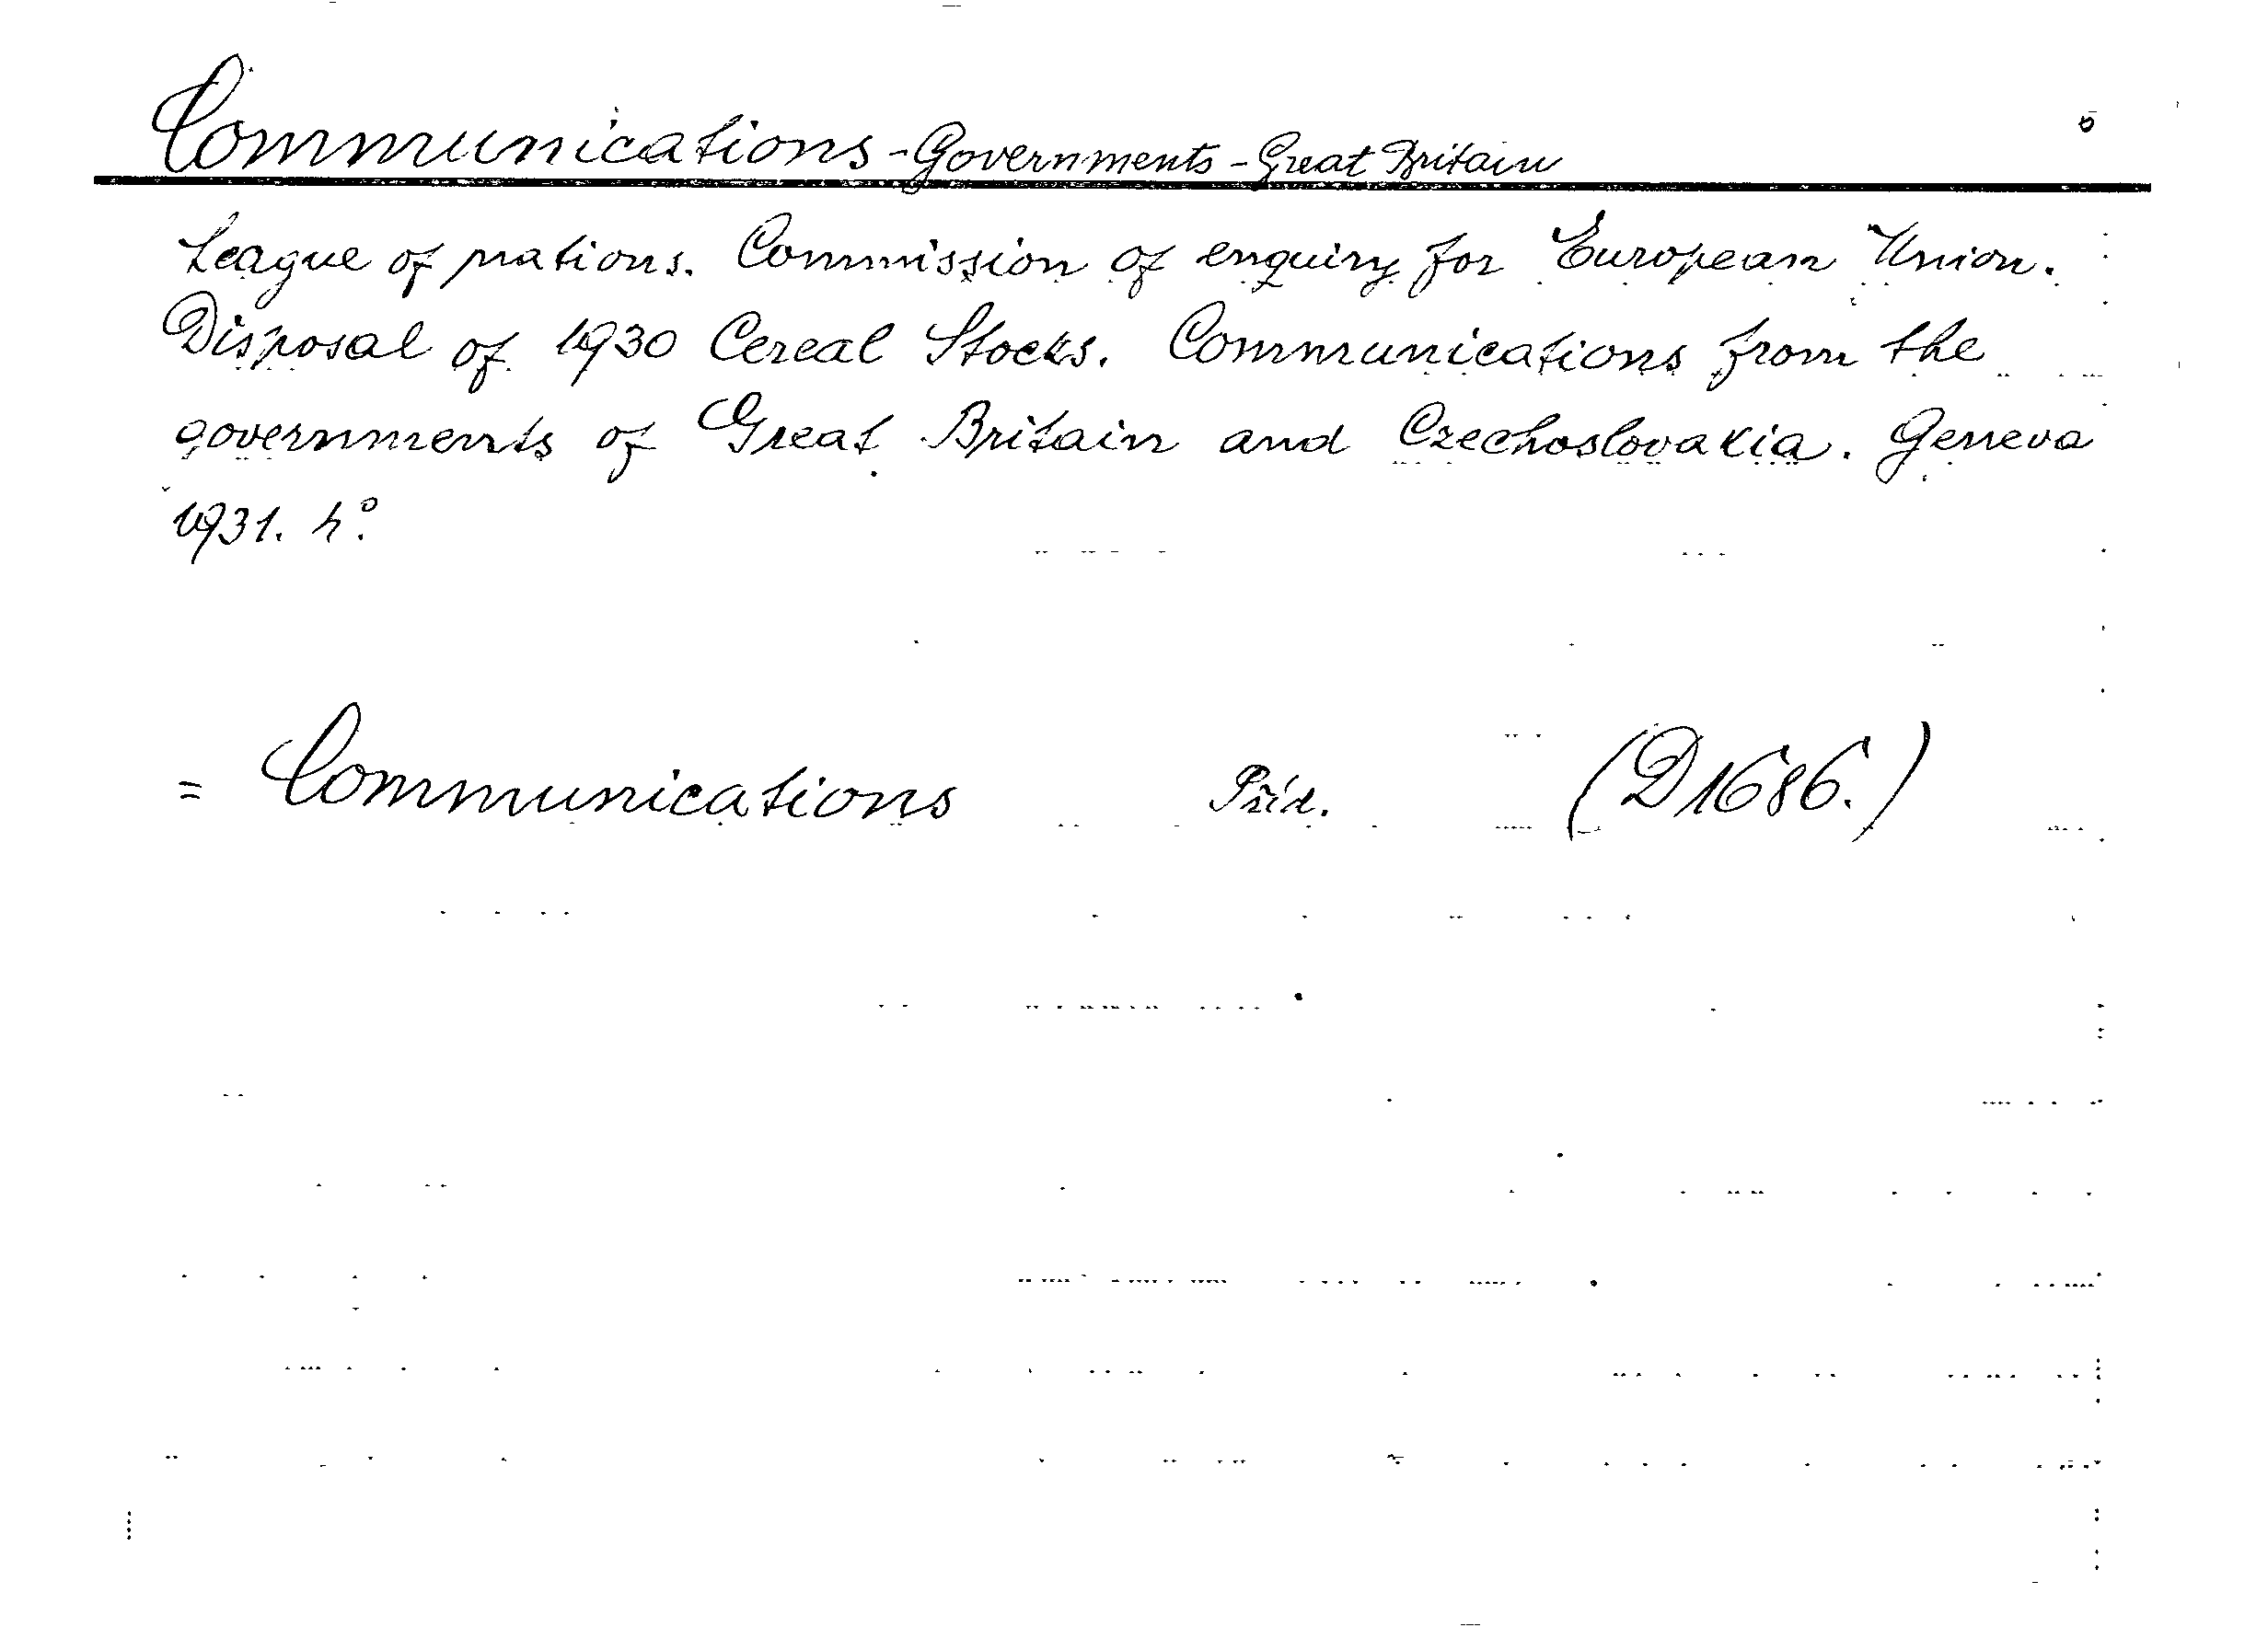 Communications - Governments - Great Britain
League of nations. Commission of enquiry for European Union.
Disposal of 1930 Cereal Stocks. Communications from the
governments of Great Britain and Czechoslovakia. Geneva
1931. 4°.
= Communications Příd. (D1686.)